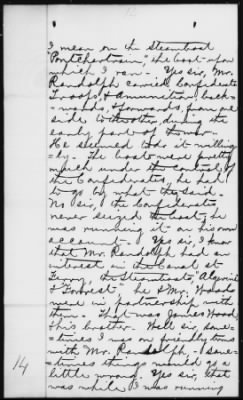 I mean on the Steamboat
"Pontchartrain," the boat upon
which I ran. Yes sir, Mr.
Randolph carried Confederate
Troops, & ammunition back-
wards, & forwards, from one
side to the other, during the
early part of the war.
He seemed to do it willing
-ly. The boats were pretty
much under the control of
the Confederates, he had
to go by what they said.
No sir, the Confederates
never seized the boat, he
was running it on his own
account. Yes sir, I know
that Mr. Randolph had an
interest in the Canal St.
Ferry, the Steamboats, "Algiers
& Forrest" he & Mr. Woods
were in partnership with
them. That was James Wood
& his brother. Well sir, some-
times I was on friendly terms
with Mr. Randolph, & some-
times things would go a
14 little wrong. Yes sir, that
was while I was running